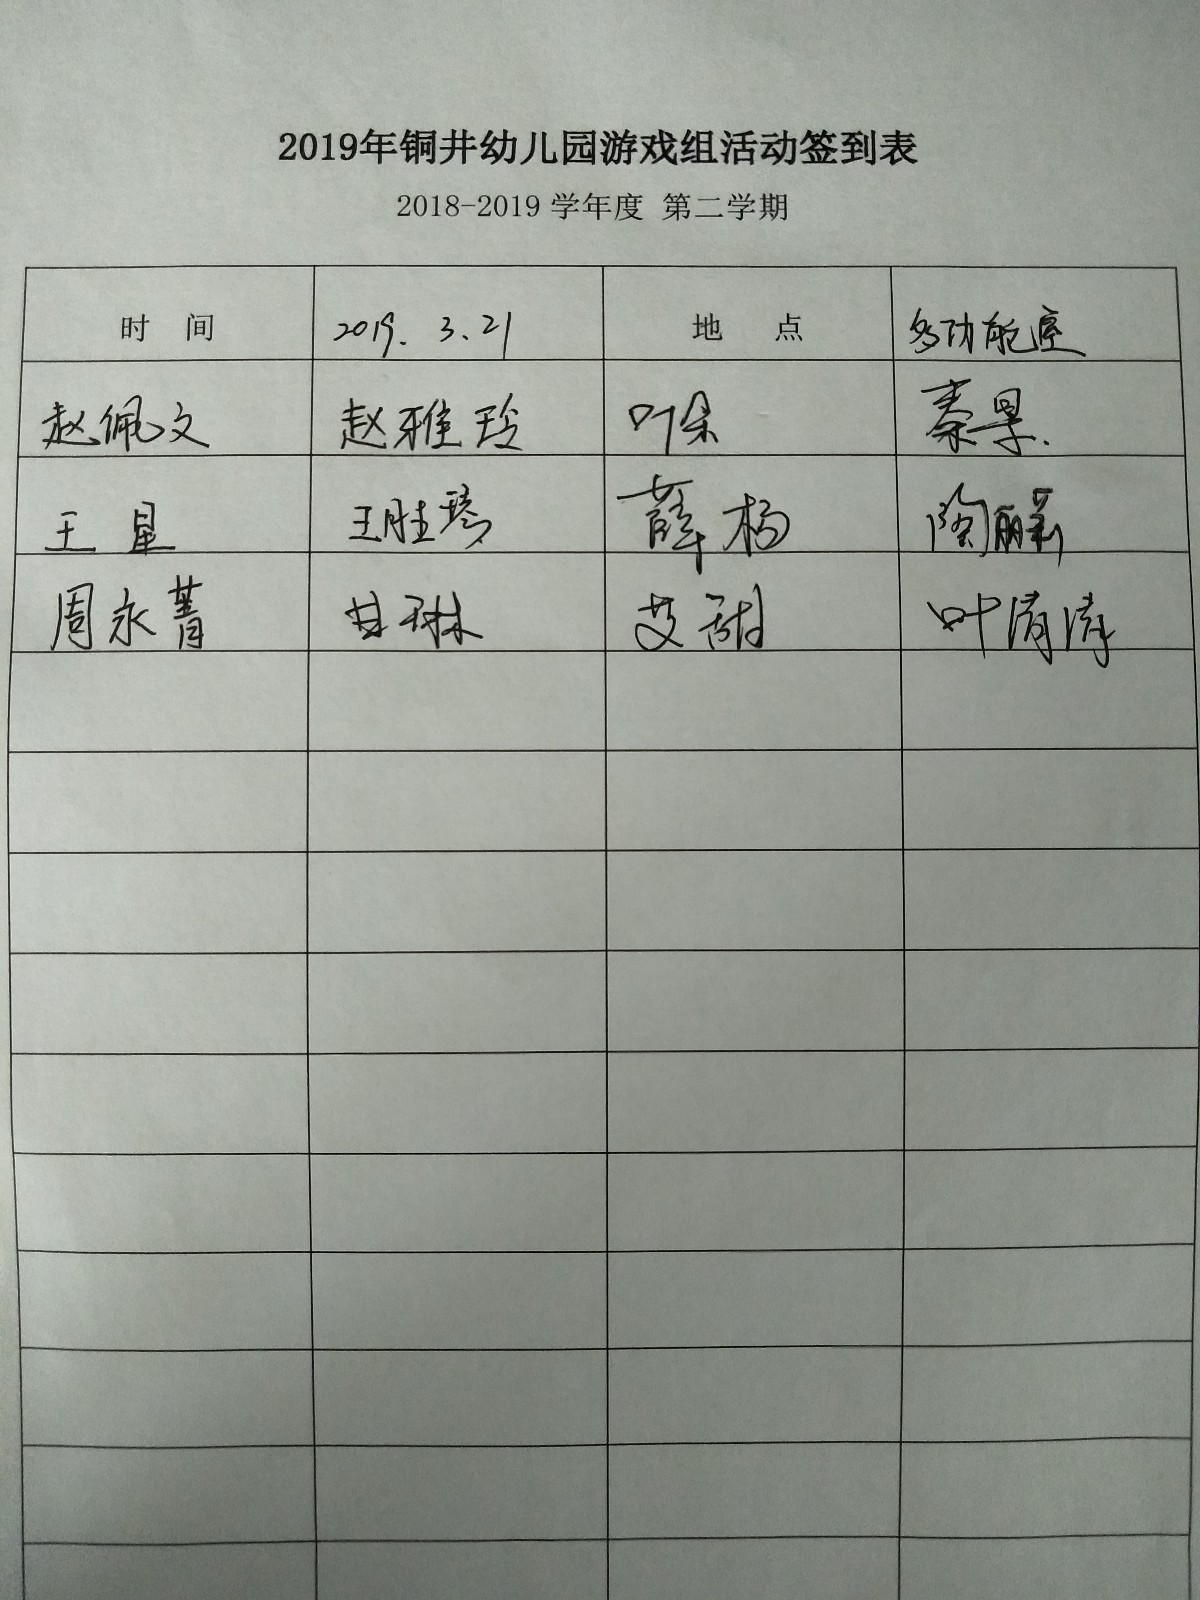 2019年铜井幼儿园游戏组活动签到表
2018-2019 学年度 第二学期
时 间 2019. 3. 21 地 点 多功能室
赵佩文 赵雅玲 叶朵 秦景
王星 王胜琴 薛杨 陶丽莉
周永菁 甘琳 艾甜 叶清清